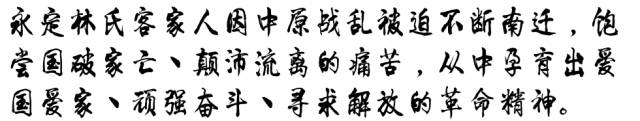 永定林氏客家人因中原战乱被迫不断南迁，饱
尝国破家亡、颠沛流离的痛苦，从中孕育出爱
国爱家、顽强奋斗、寻求解放的革命精神。